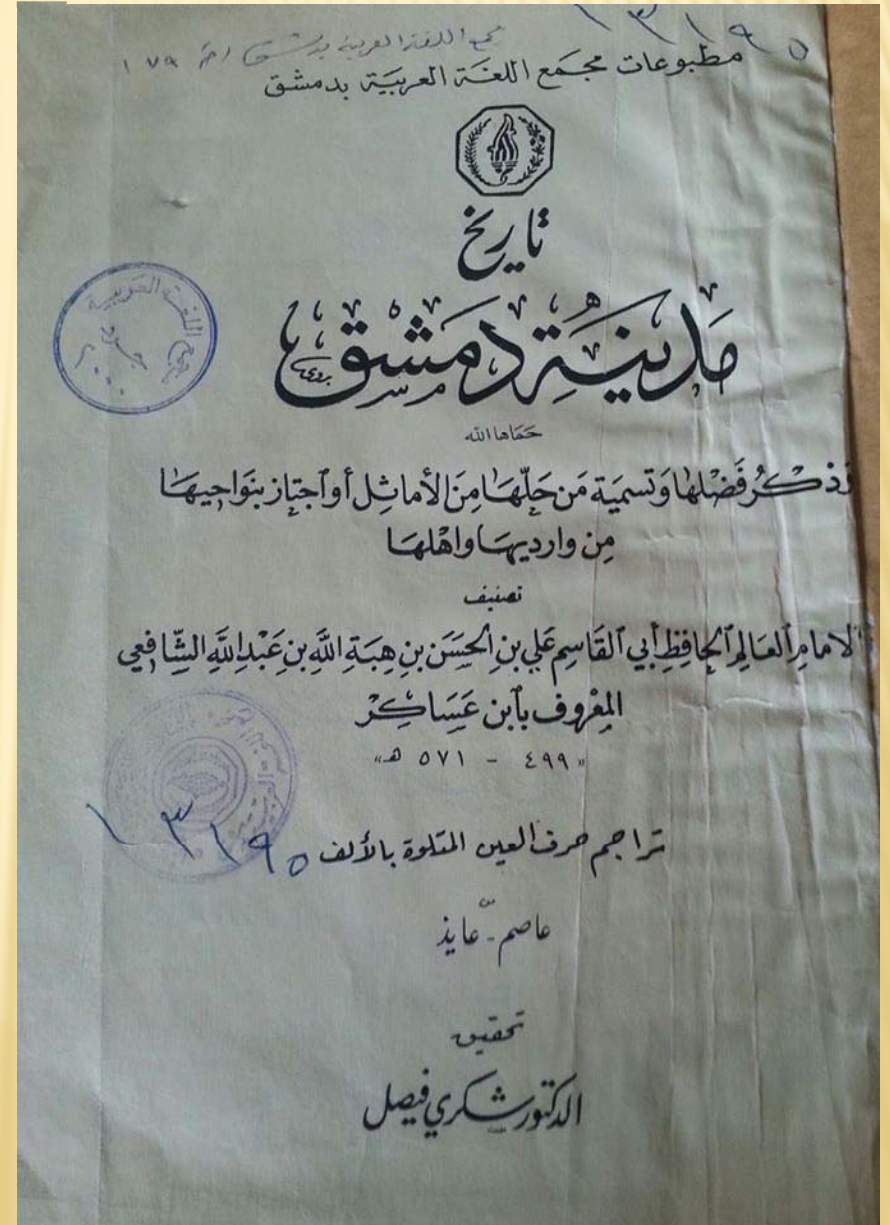 مجمع اللغة العربية بدمشق ١٧٩
١٣١٩٥
مطبوعات مجمَع اللغَة العربيَة بدمشق
تاريخ
مَدينَةِ دمَشق
حَمَاها الله
وَذكرُ فَضْلهَا وَتسميَة مَن حَلّهَا مِنَ الأماثِل أو اجتاز بنَواحيهَا
مِن وارديهَا واهْلهَا
تصنيف
الامامِ العَالِمِ الحافِظِ أبي القَاسِم عَلي بنِ الحسَن بنِ هِبَةِ اللهِ بنِ عَبْدِ اللهِ الشّافِعِي
المعْروف بابن عَسَاكِر
«٤٩٩ - ٥٧١ هـ»
تراجم حرف العين المتلوة بالألف
١٣١٩٥
عاصم - عايذ
تحقيق
الدكتور شكري فيصل
مجمع اللغة العربية